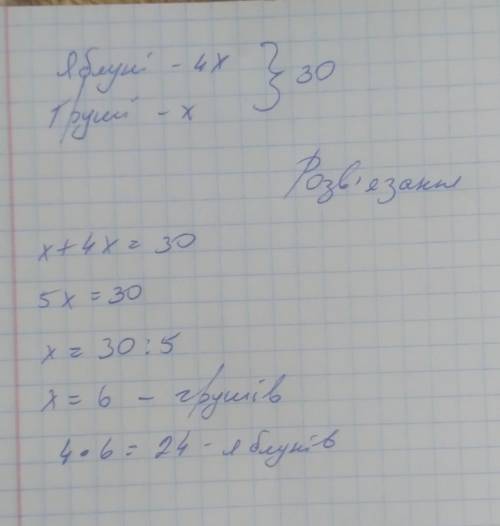 Яблуні - 4x } 30
Груші - x
Розв'язання
x + 4x = 30
5x = 30
x = 30 : 5
x = 6 - грушів
4 • 6 = 24 - яблунів